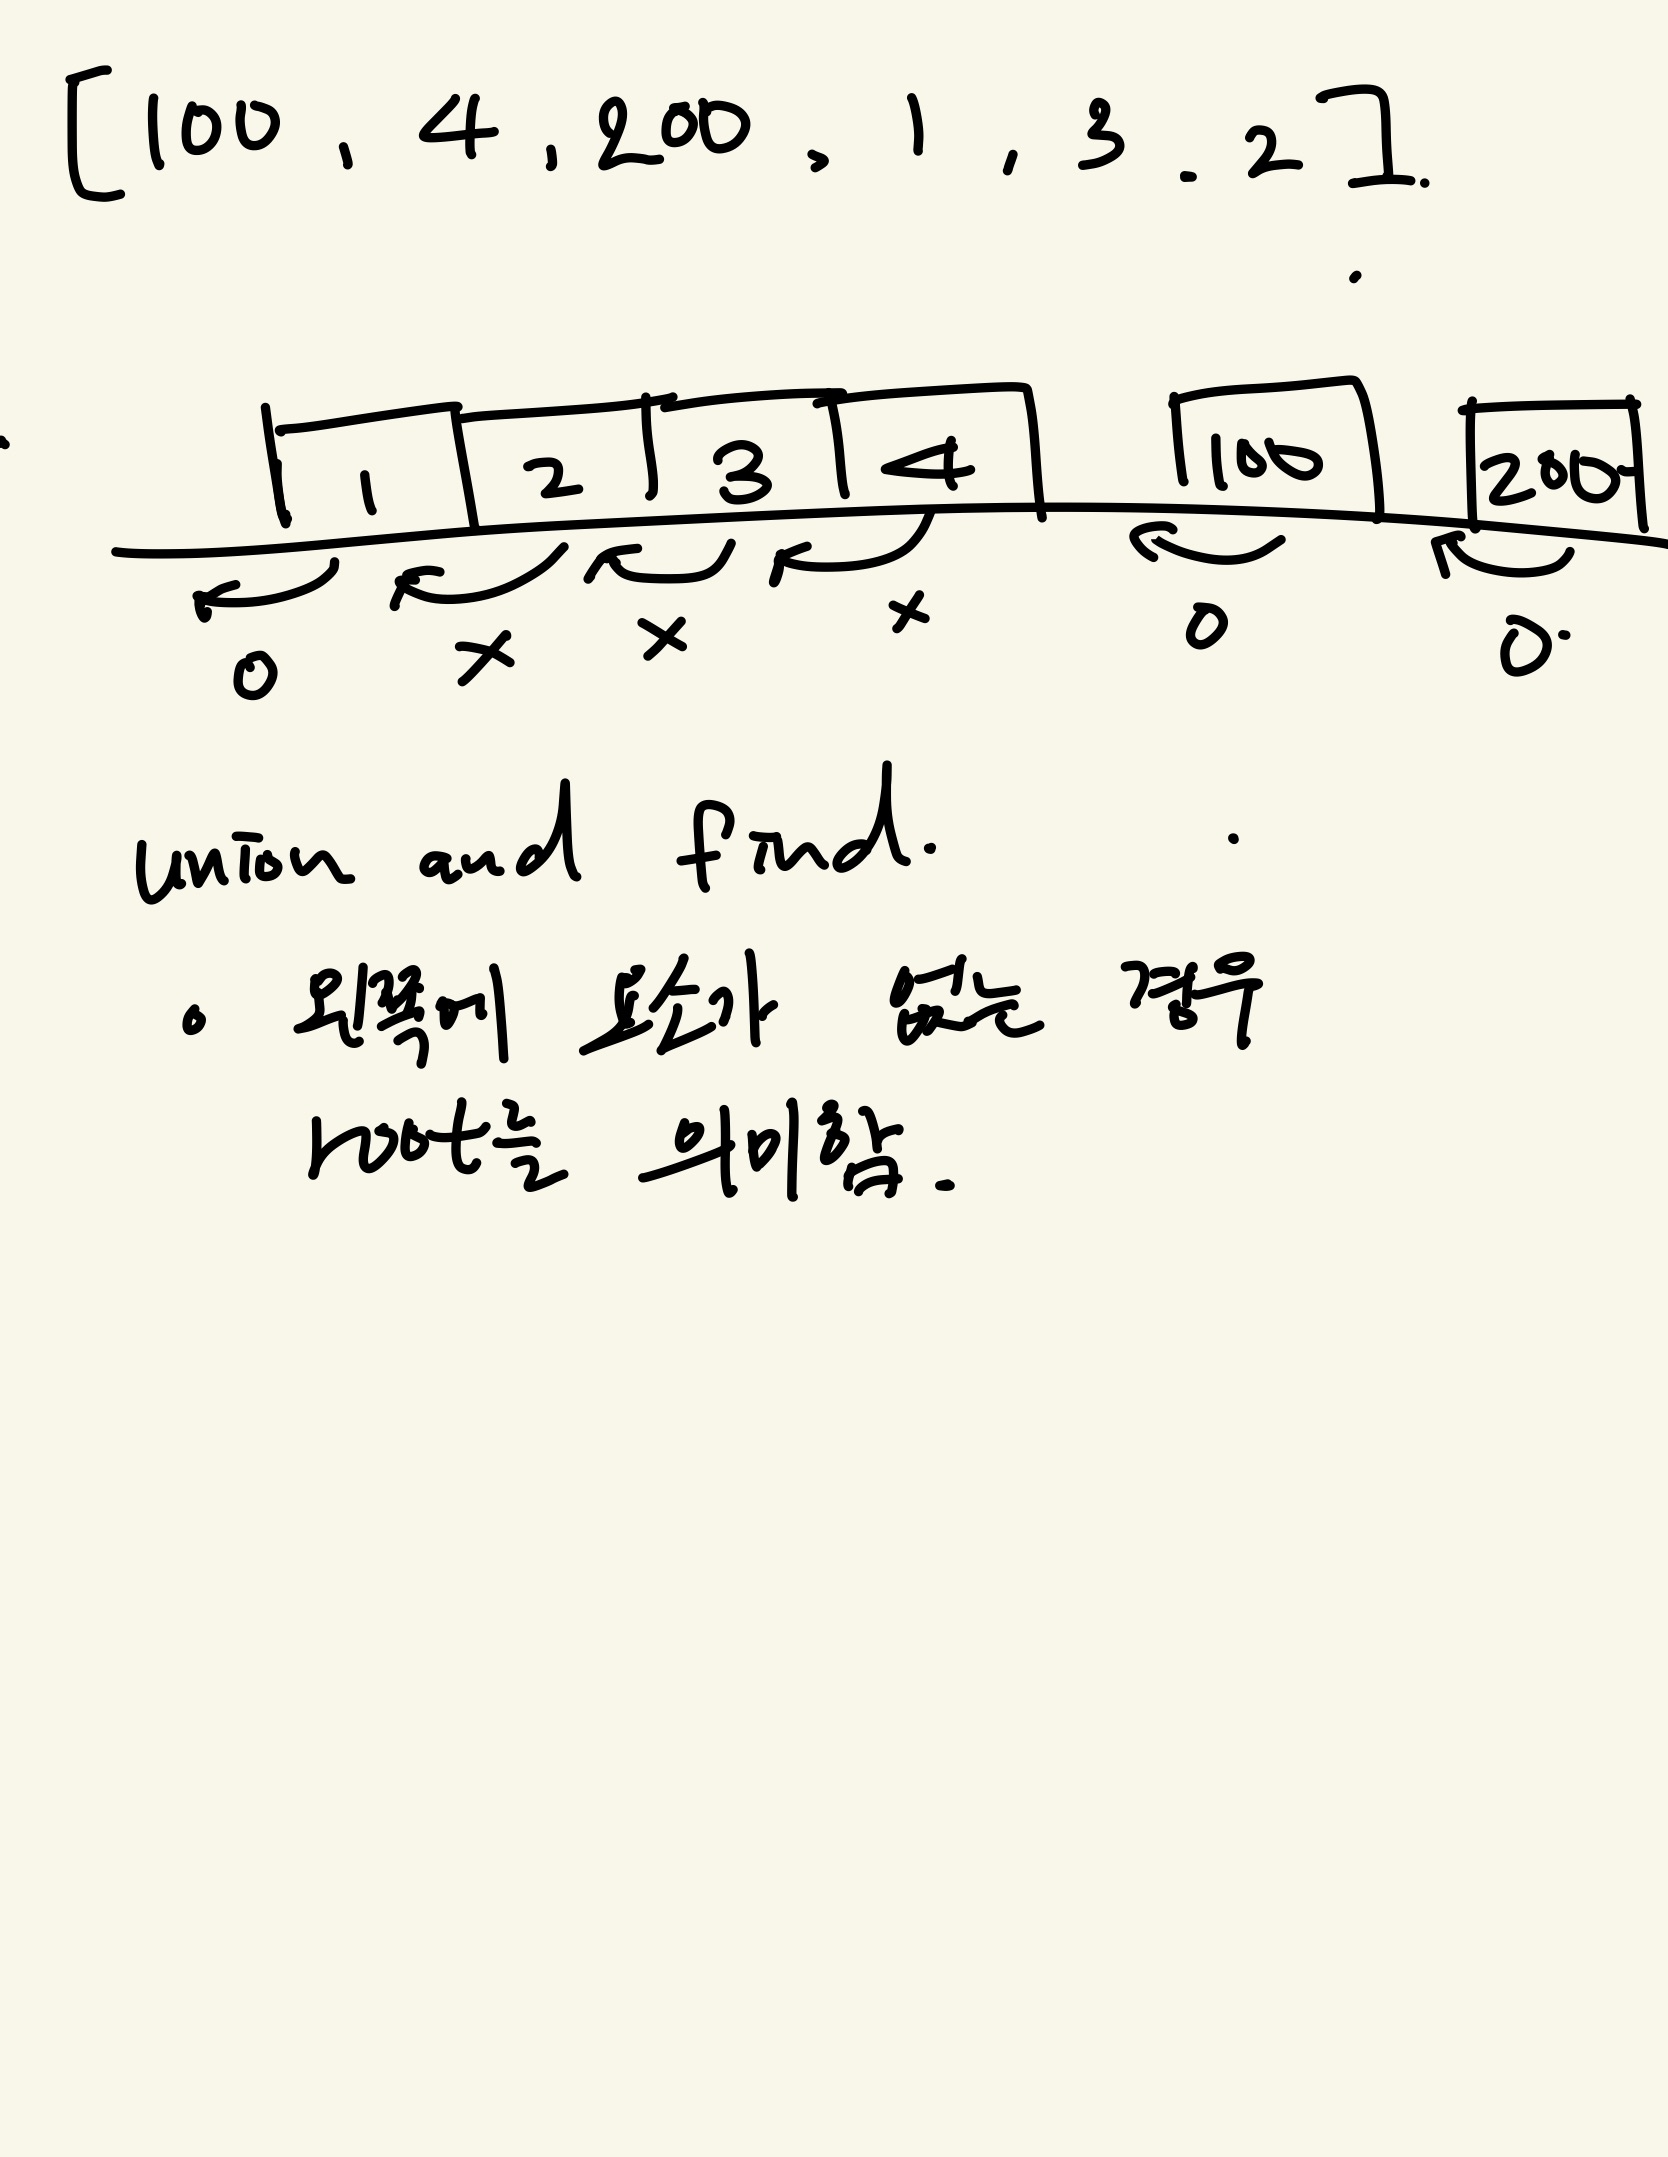 [100, 4, 200, 1, 3, 2].
1 2 3 4 100 200
O X X X O O
union and find.
왼쪽에 요소가 없는 경우
root를 의미함.